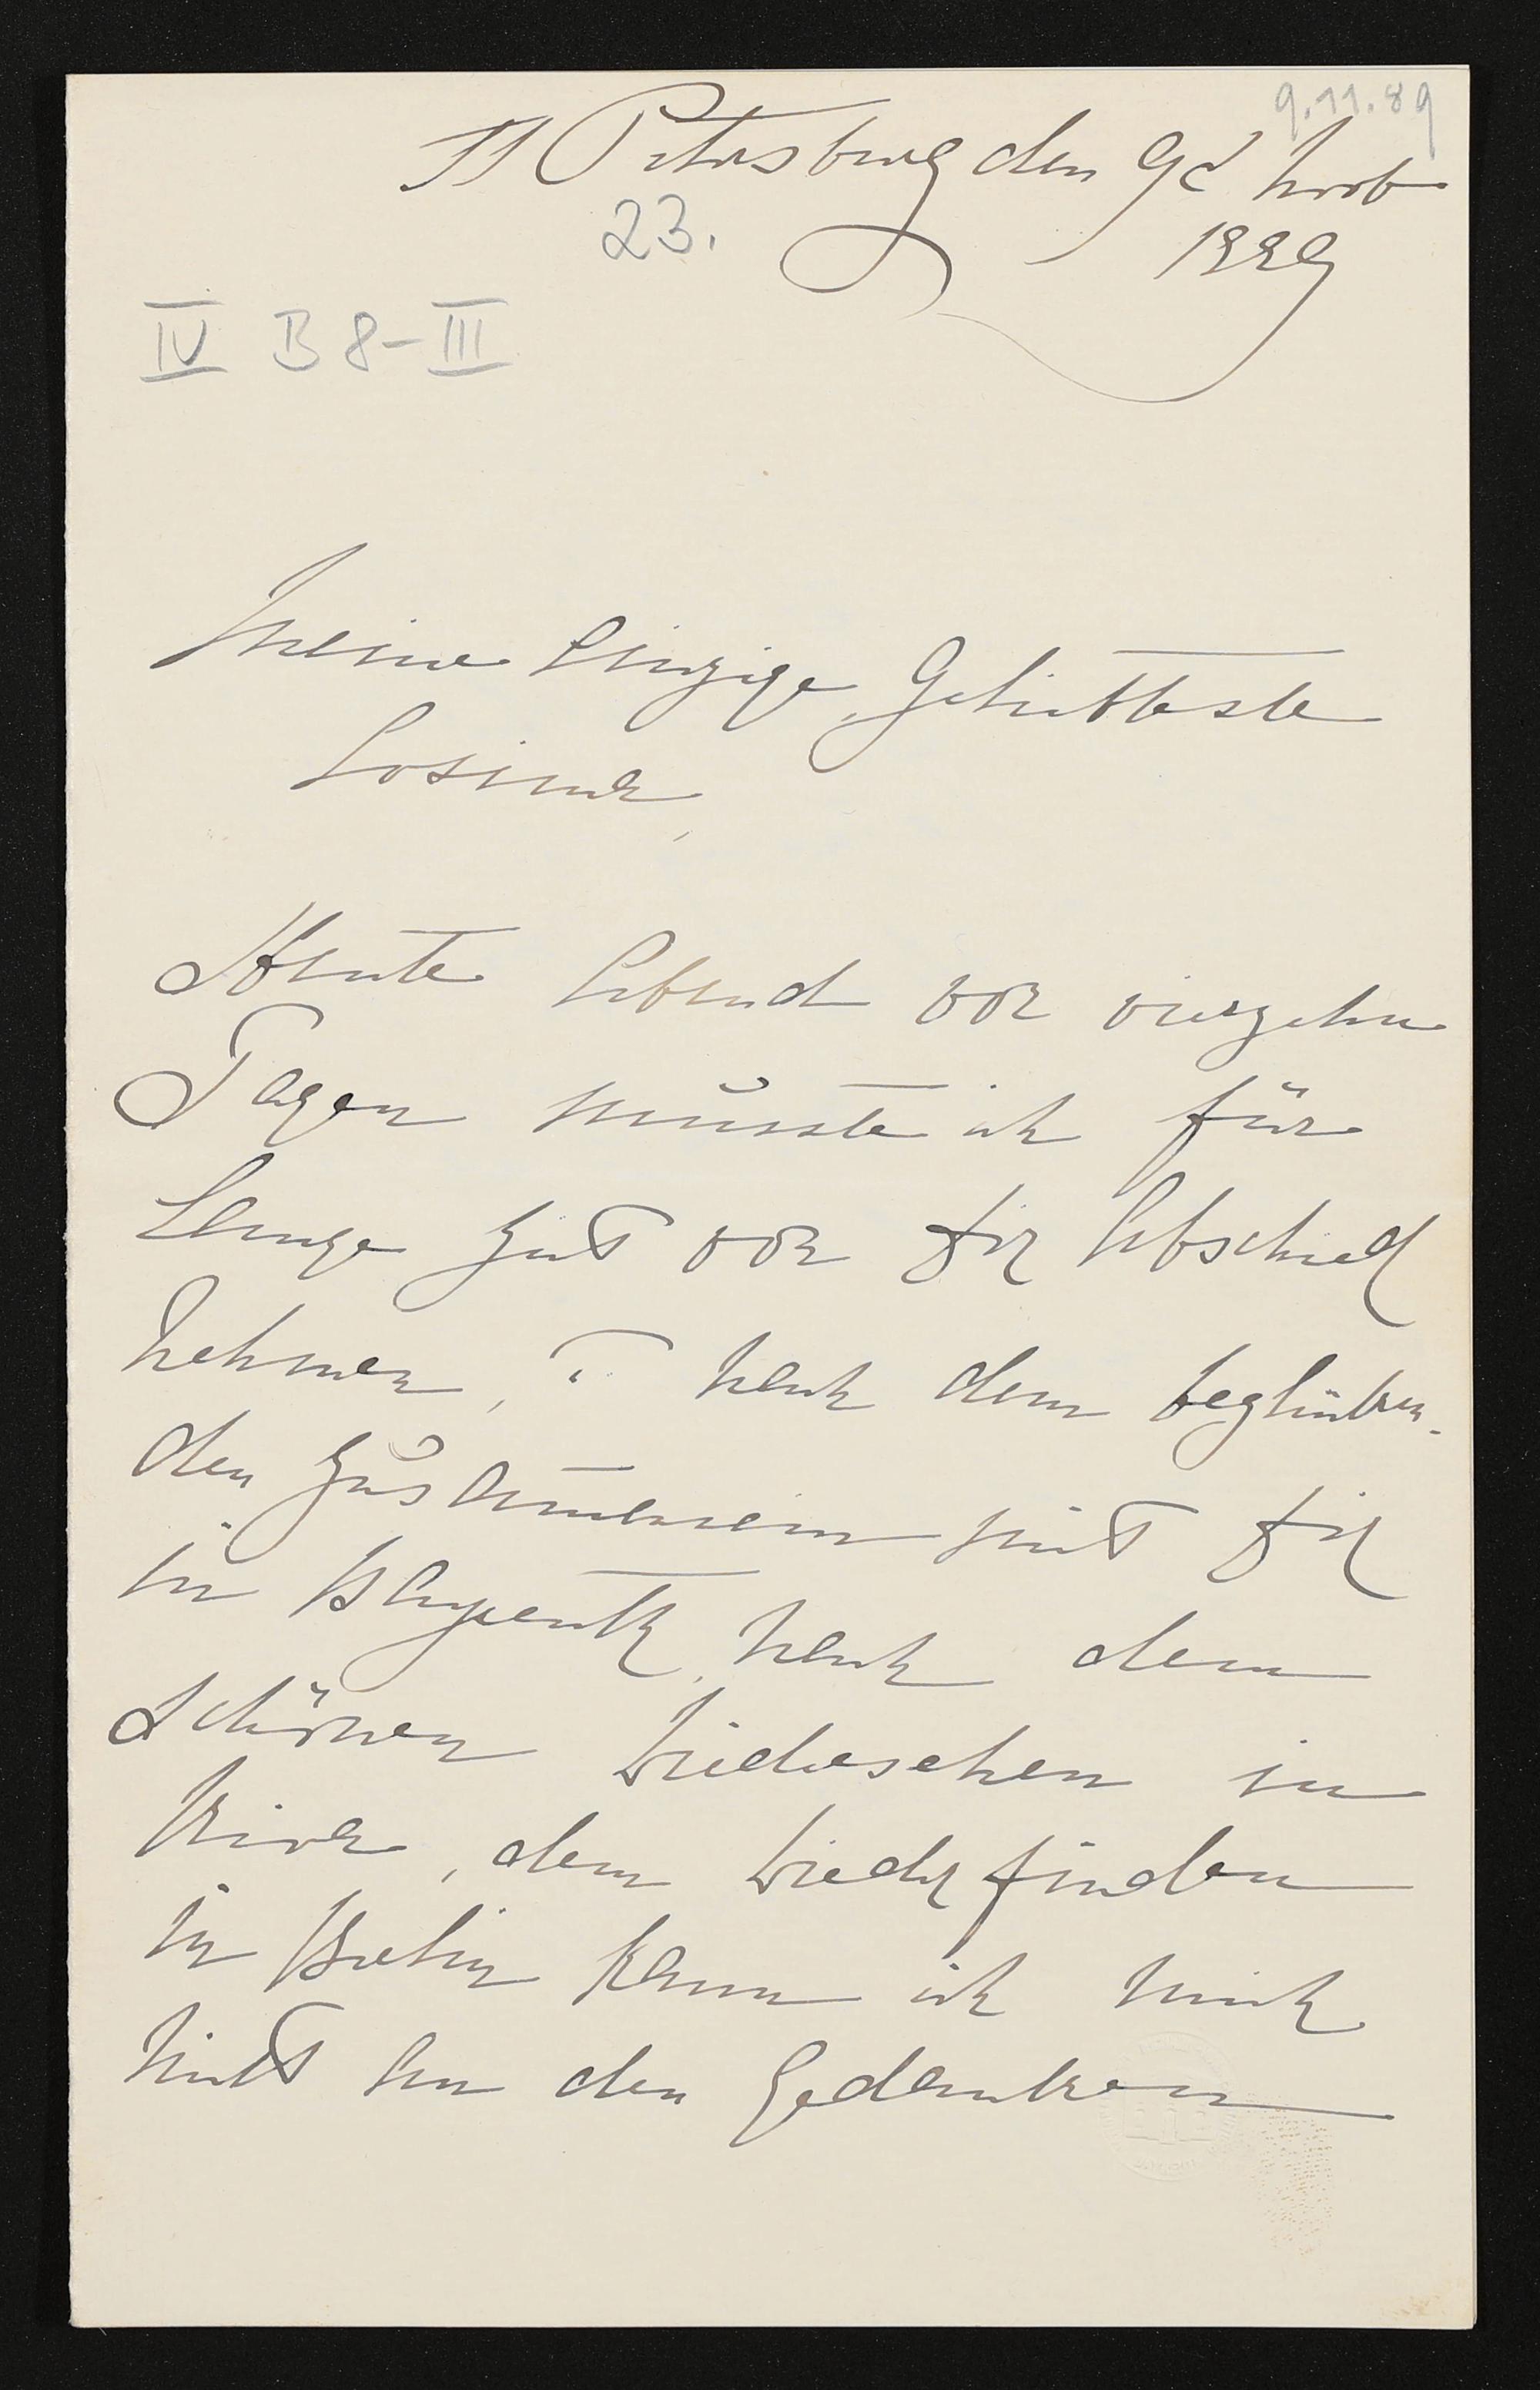 9.11.89
St Petersburg den 9t Nov
23.
1889
IV B 8-III
Meine Einzige, Geliebteste
Cosima,
Heute Abend vor vierzehn
Tagen musste ich für
Lange Zeit von Dir Abschied
nehmen, u nach dem beglücken-
den Zusam̅ensein mit Dir
in Bayreuth, nach dem
schönen Wiedersehen in
, dem Wiederfinden
in Berlin kann ich mich
nicht an den Gedanken